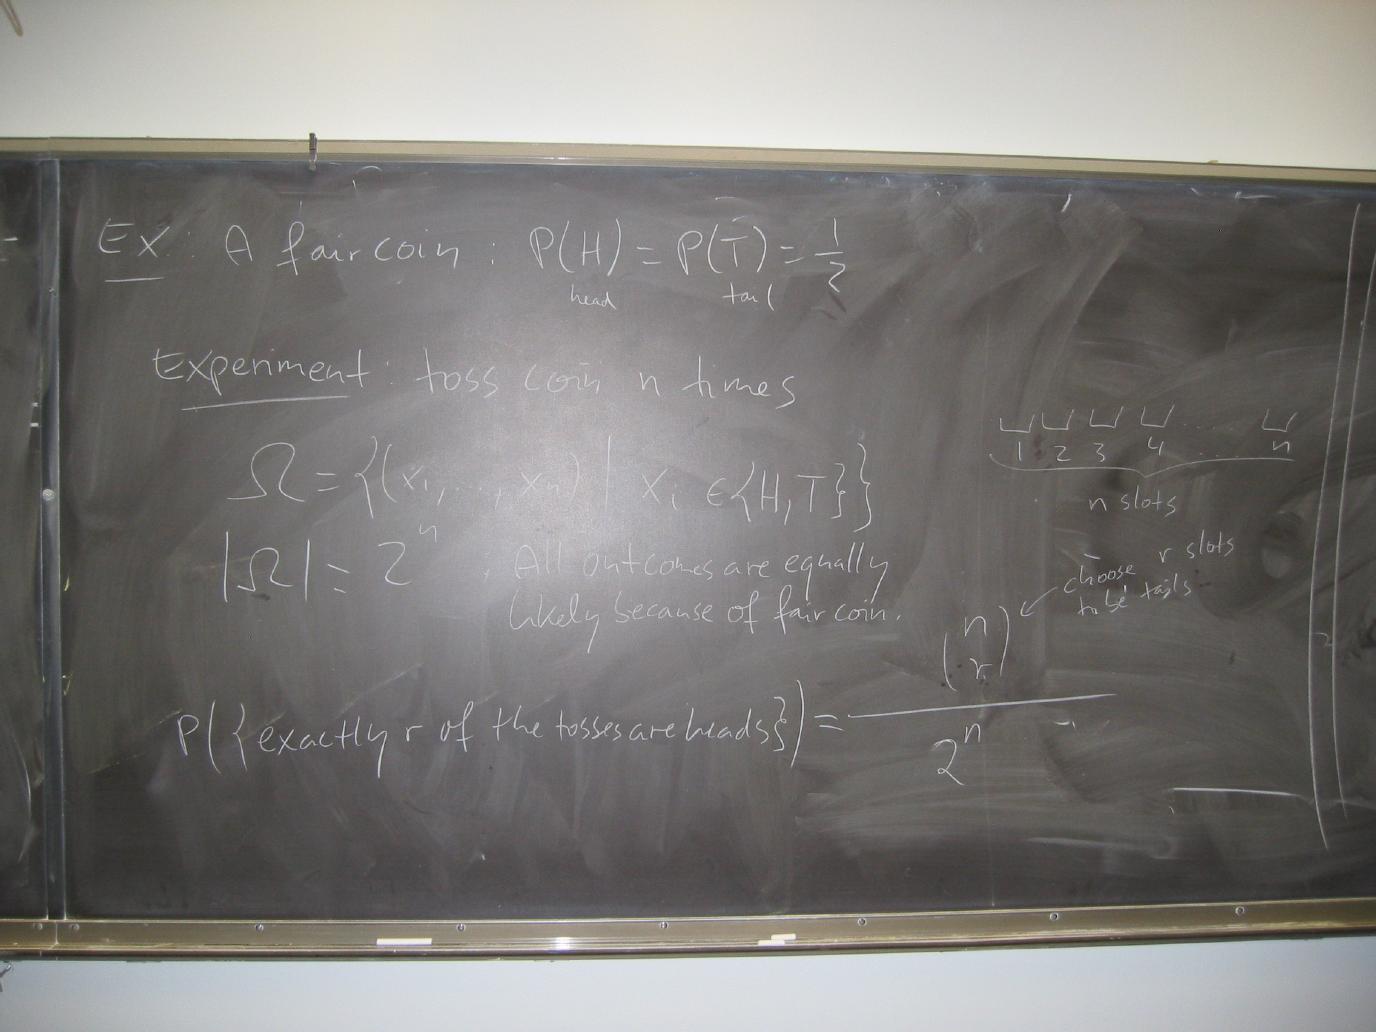 Ex: A fair coin: P(H) = P(T) = 1/2
head tail
Experiment: toss coin n times
1 2 3 4 ..... n
n slots
Ω = {(x₁, ..., xₙ) | xᵢ ∈ {H,T}}
|Ω| = 2ⁿ. All outcomes are equally
likely because of fair coin.
choose r slots
to be tails
P({exactly r of the tosses are heads}) = (n r) / 2ⁿ